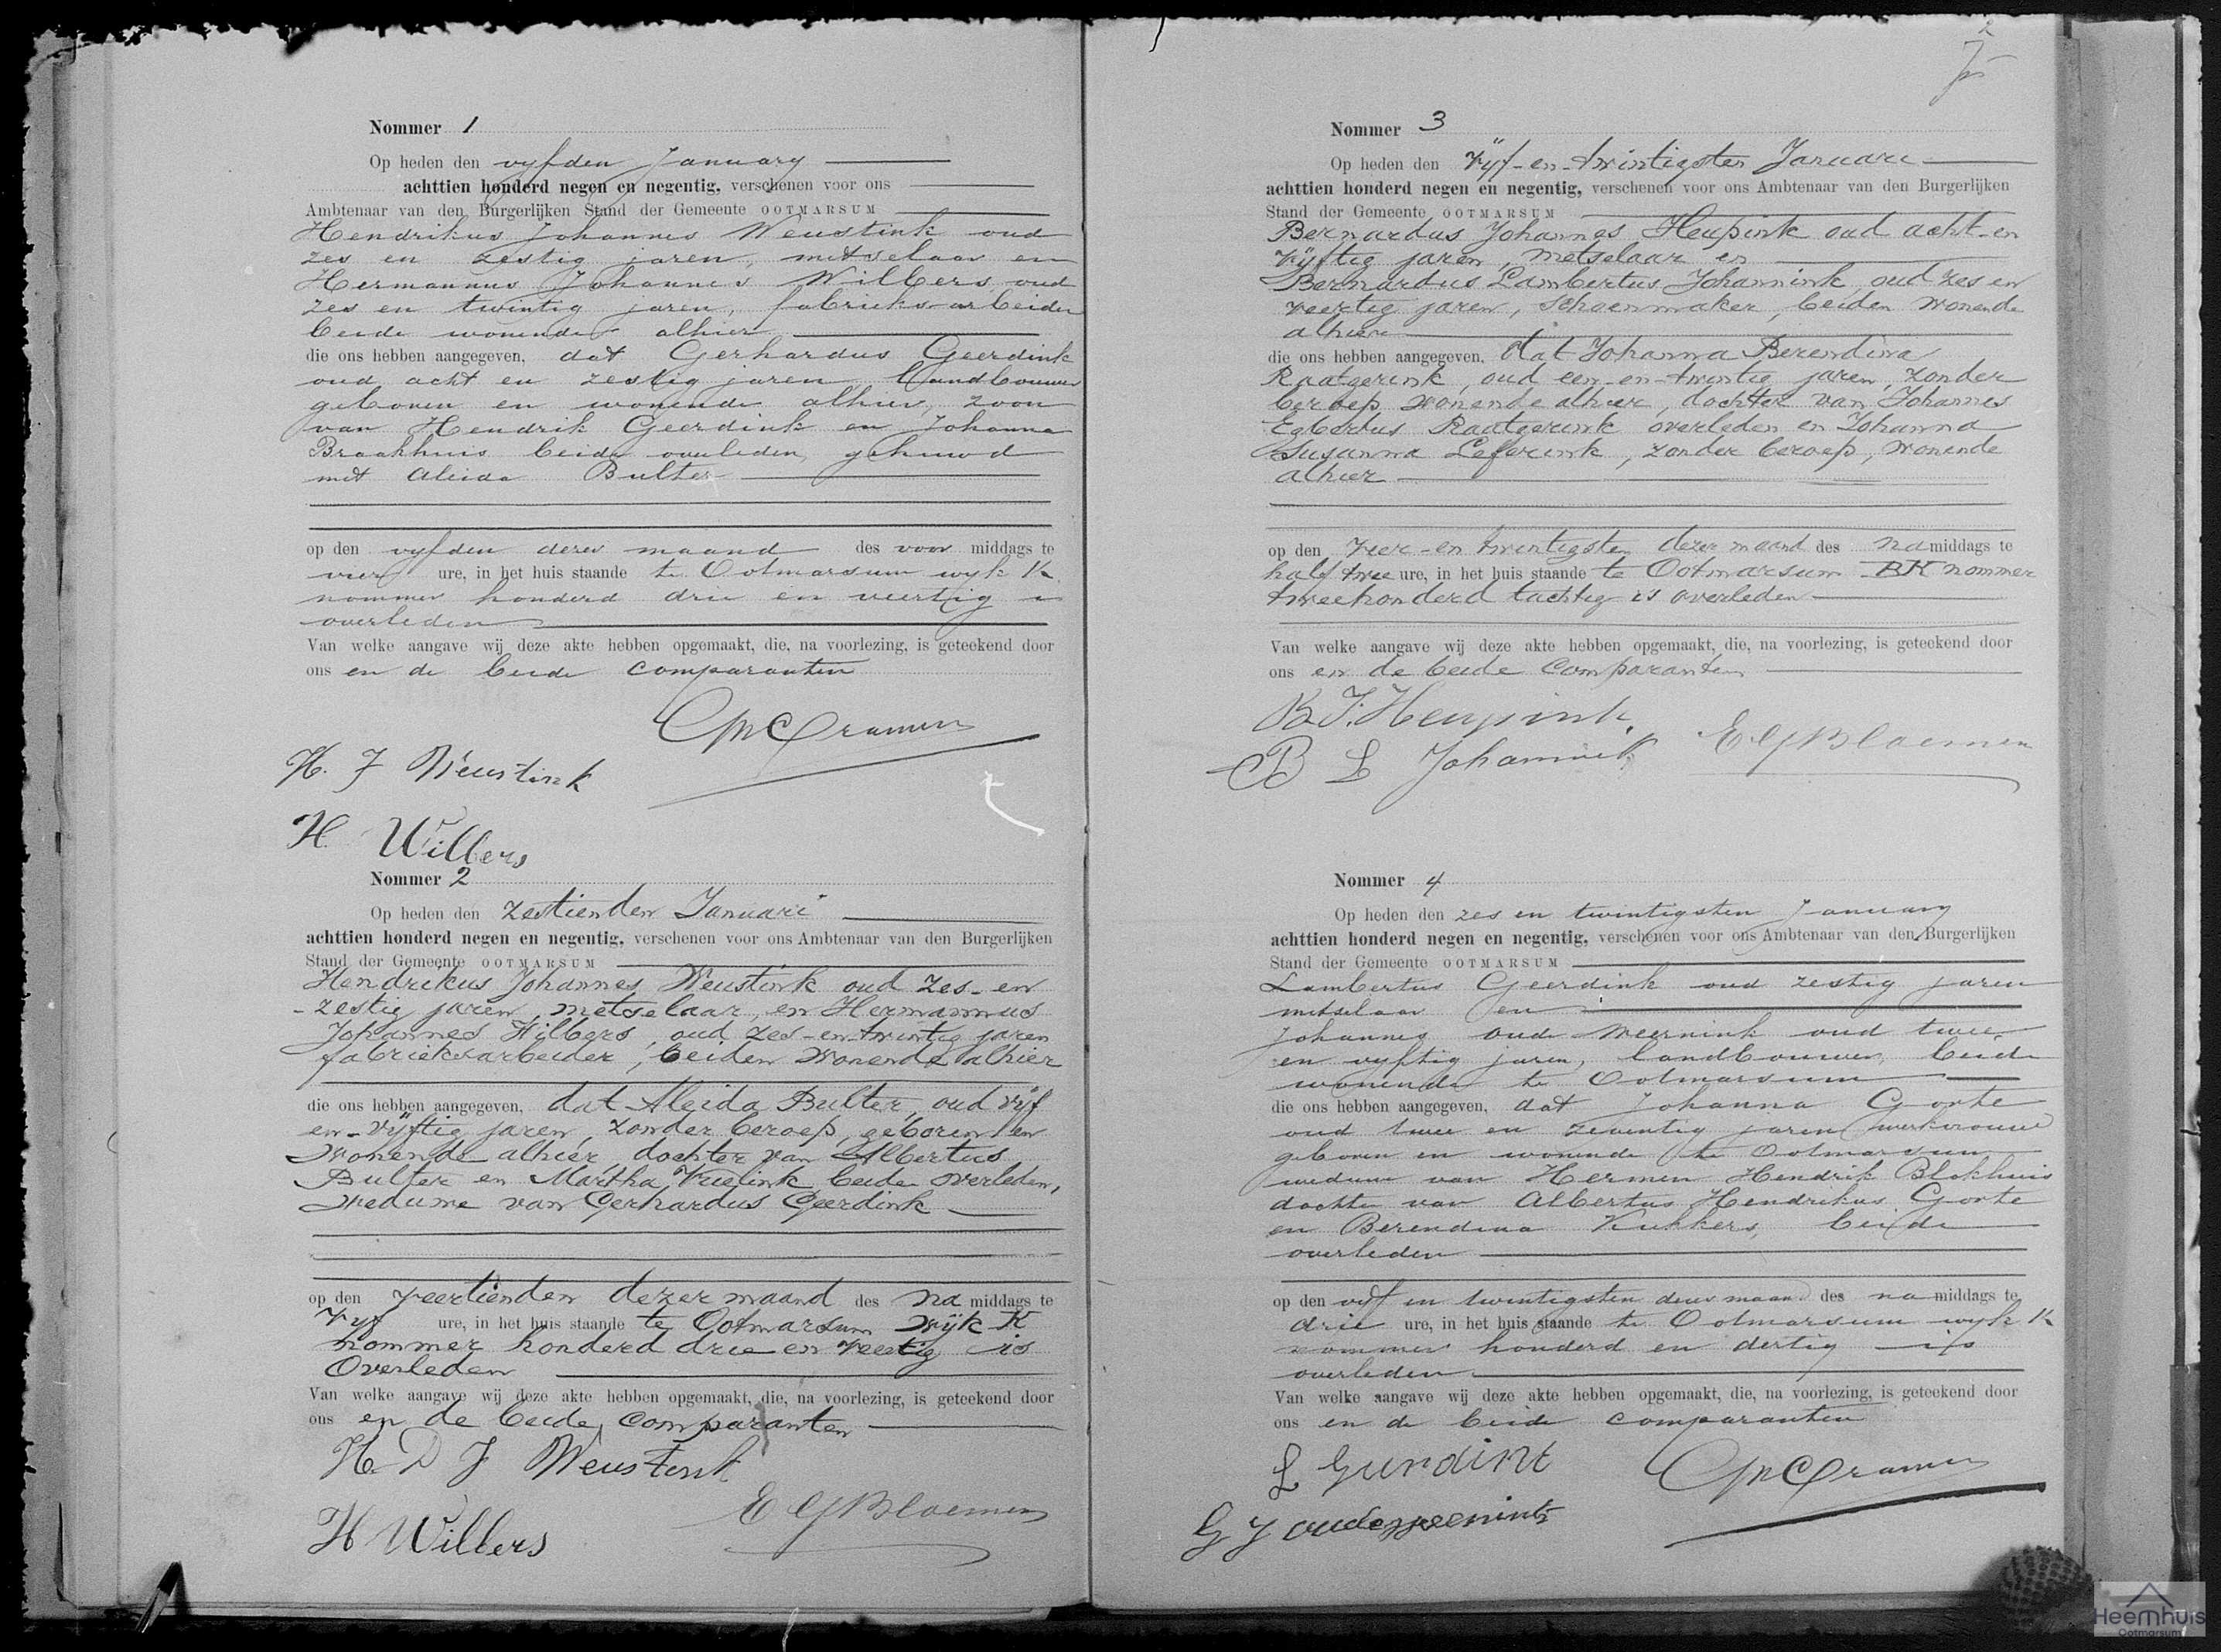 Nommer 1
Op heden den vyfden January
achttien honderd negen en negentig, verschenen voor ons
Ambtenaar van den Burgerlijken Stand der Gemeente OOTMARSUM
Hendrikus Johannes Weustink oud
zes en zestig jaren, metselaar en
Hermannus Johannes Wilbers oud
zes en twintig jaren, fabrieksarbeider
beide wonende alhier
die ons hebben aangegeven, dat Gerhardus Geerdink
oud acht en zestig jaren, landbouwer
geboren en wonende alhier, zoon
van Hendrik Geerdink en Johanna
Braakhuis beide overleden, gehuwd
met Aleida Bulter
op den vyfden dezer maand des voor middags te
vier ure, in het huis staande te Ootmarsum wyk K
nommer honderd drie en veertig is
overleden
Van welke aangave wij deze akte hebben opgemaakt, die, na voorlezing, is geteekend door
ons en de beide comparanten
Cramer
H. J Weustink
H. Wilbers
Nommer 2
Op heden den zestienden Januari
achttien honderd negen en negentig, verschenen voor ons Ambtenaar van den Burgerlijken
Stand der Gemeente OOTMARSUM
Hendrikus Johannes Weustink oud zes-en
-zestig jaren, metselaar, en Hermannus
Johannes Wilbers, oud zes-en-twintig jaren
fabrieksarbeider, beiden wonende alhier
die ons hebben aangegeven, dat Aleida Bulter, oud vijf
en-vijftig jaren, zonder beroep, geboren en
wonende alhier, dochter van Albertus
Bulter en Martha beide overleden,
weduwe van Gerhardus Geerdink
op den veertienden dezer maand des na middags te
vijf ure, in het huis staande te Ootmarsum Wijk K
nommer honderd drie en veertig is
Overleden
Van welke aangave wij deze akte hebben opgemaakt, die, na voorlezing, is geteekend door
ons en de beide comparanten
H. D J Weustink
E G Bloemen
H Wilbers
Nommer 3
Op heden den Vijf-en-twintigsten Januari
achttien honderd negen en negentig, verschenen voor ons Ambtenaar van den Burgerlijken
Stand der Gemeente OOTMARSUM
Bernardus Johannes Heupink oud acht-en
Vijftig jaren, metselaar en
Bernardus Lambertus Johannink, oud zes en
veertig jaren, Schoenmaker, beiden wonende
alhier
die ons hebben aangegeven, dat Johanna Berendina
Raatgerink, oud een-en-twintig jaren, zonder
beroep wonende alhier, dochter van Johannes
Egbertus Raatgerink overleden en Johanna
Susanna Leferink, zonder beroep, wonende
alhier
op den Vier-en twintigsten dezer maand des na middags te
half twee ure, in het huis staande te Ootmarsum BK nommer
tweehonderd tachtig is overleden
Van welke aangave wij deze akte hebben opgemaakt, die, na voorlezing, is geteekend door
ons en de beide Comparanten
B J. Heupink.
E G Bloemen
B L Johannink
Nommer 4
Op heden den zes en twintigsten January
achttien honderd negen en negentig, verschenen voor ons Ambtenaar van den Burgerlijken
Stand der Gemeente OOTMARSUM
Lambertus Geerdink oud zestig jaren
metselaar en
Johannes oude Weernink oud twee
en vyftig jaren, landbouwer, beide
wonende te Ootmarsum
die ons hebben aangegeven, dat Johanna Gorte
oud twee en zeventig jaren werkvrouw
geboren en wonende te Ootmarsum
weduwe van Hermen Hendrik Blokhuis
dochter van Albertus Hendrikus Gorte
en Berendina Kukkers, beide
overleden
op den vyf en twintigsten dezer maand des na middags te
drie ure, in het huis staande te Ootmarsum wyk K
nommer honderd en dertig is
overleden
Van welke aangave wij deze akte hebben opgemaakt, die, na voorlezing, is geteekend door
ons en de beide comparanten
L Gerdink
Cramer
G J oudeweernink
Heemhuis
Ootmarsum